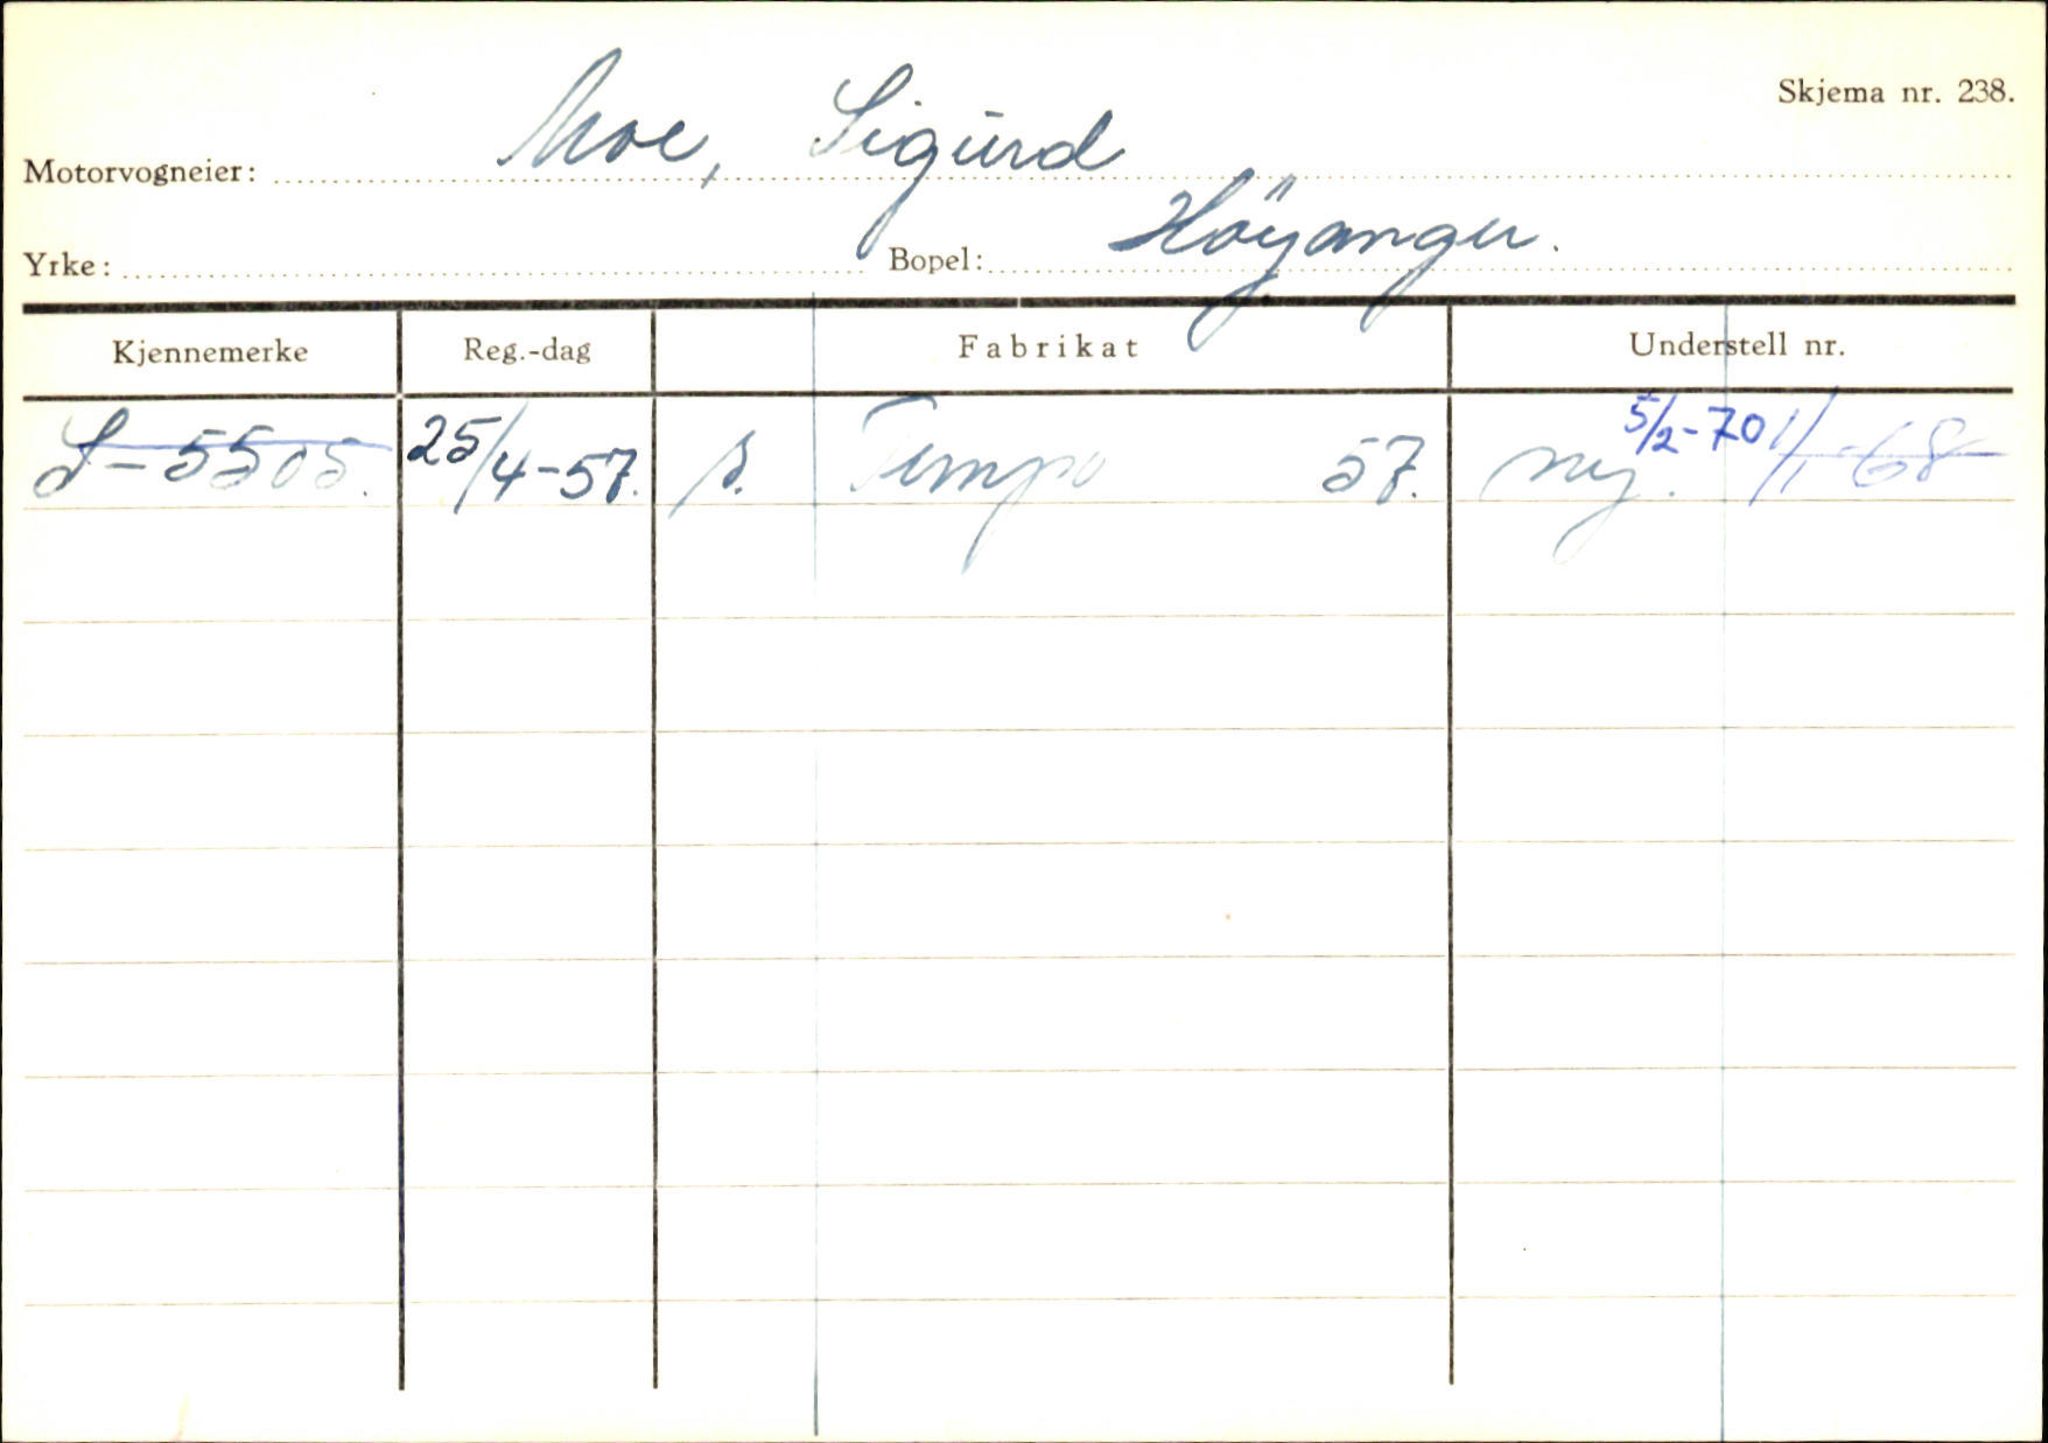 Skjema nr. 238.
Motorvogneier: Moe, Sigurd
Yrke: Bopel: Höyanger.
Kjennemerke Reg.-dag Fabrikat Understell nr.
S-5505. 25/4-57. s. Tempo 57. ny. 5/2-70 1/1-68